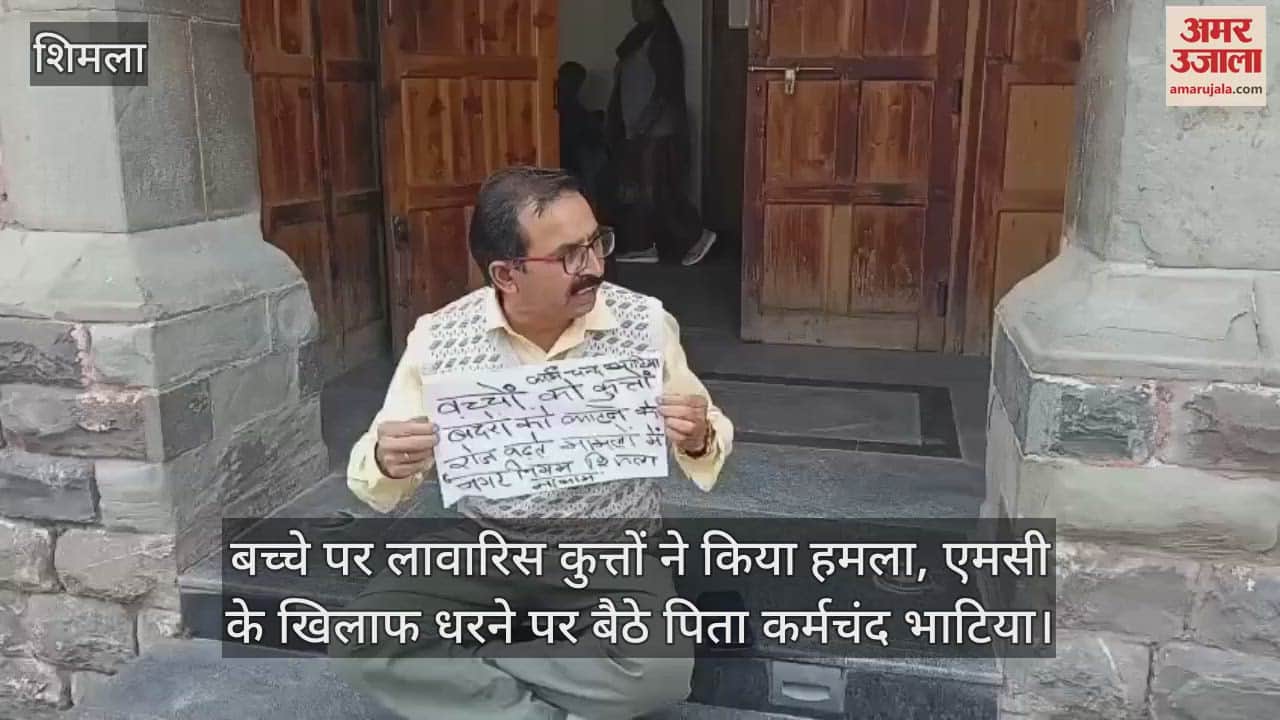 शिमला
अमर
उजाला
amarujala.com
कर्म चन्द भाटिया
बच्चों को कुत्तों
बंदरों का काटने के
रोज बढ़ते मामलों में
नगर निगम शिमला
नाकाम
बच्चे पर लावारिस कुत्तों ने किया हमला, एमसी
के खिलाफ धरने पर बैठे पिता कर्मचंद भाटिया।